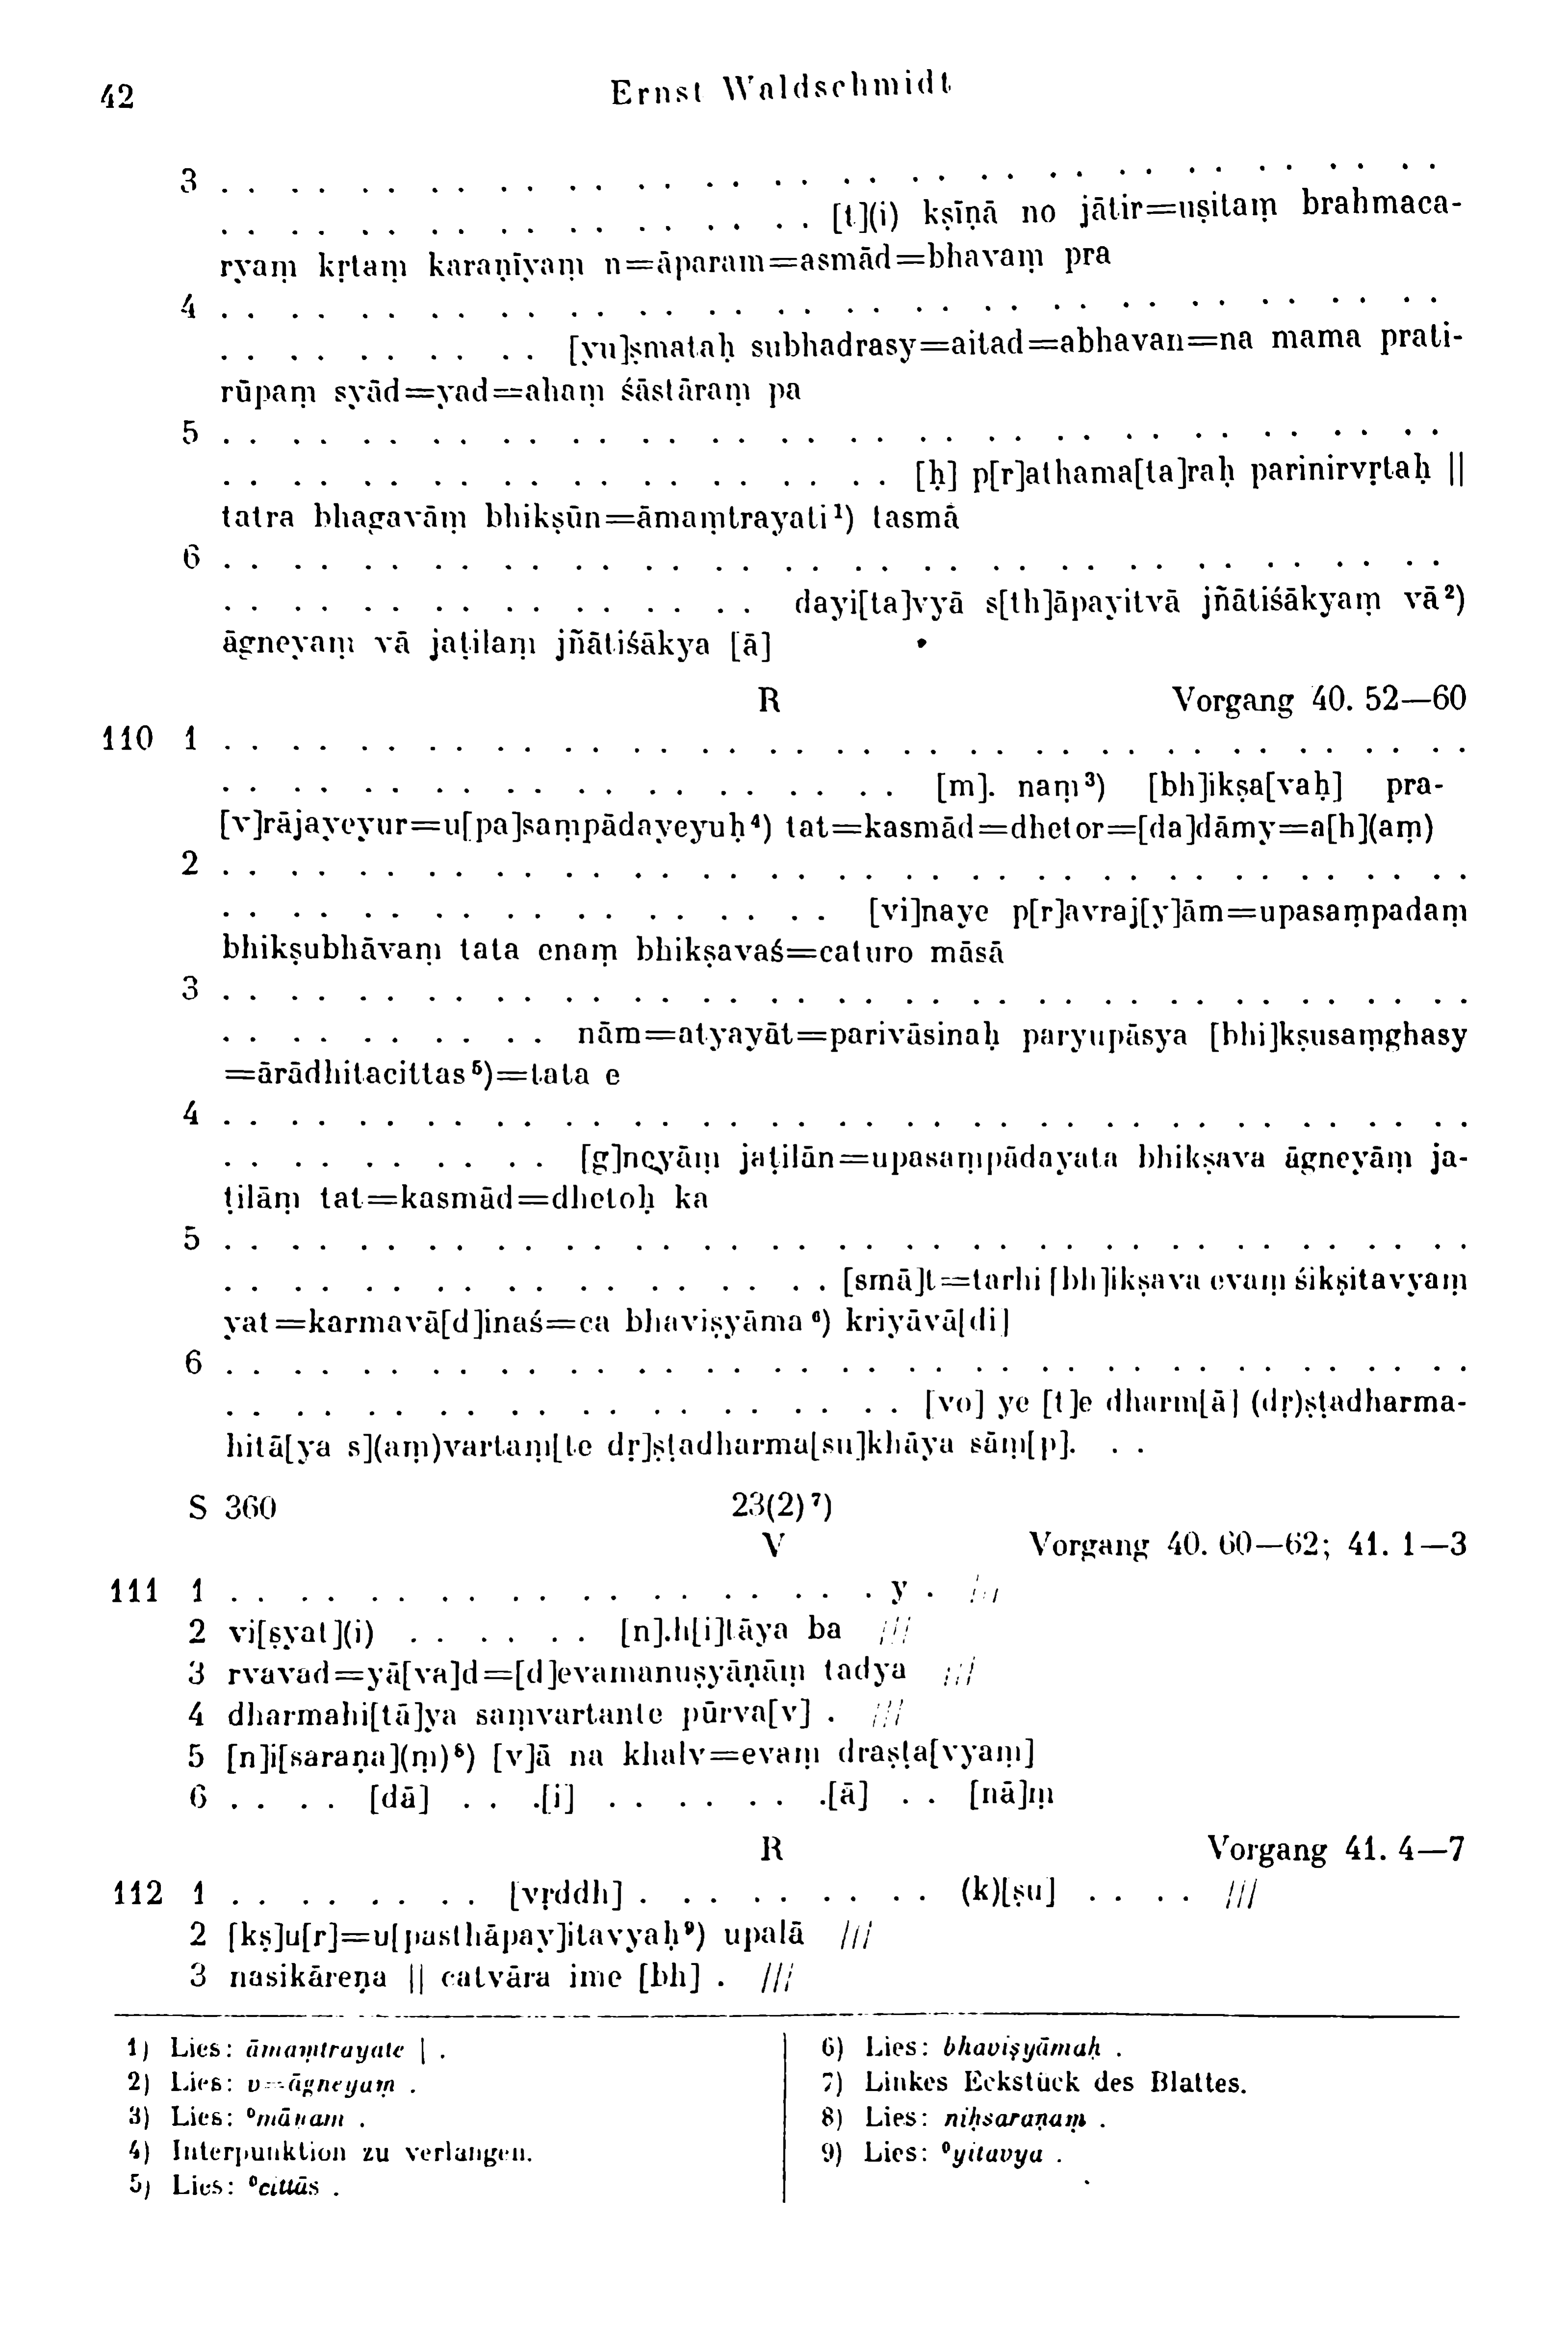 42 Ernst Waldschmidt
3 . . . . . . . . . . . . . . . . . . . . . . . . . . . . . . . . . . . .
. . . . . . . . . . . . . . . . . . [t](i) kṣīṇā no jātir=uṣitaṃ brahmaca-
ryaṃ kṛtaṃ karaṇīyaṃ n=āparam=asmād=bhavaṃ pra
4 . . . . . . . . . . . . . . . . . . . . . . . . . . . . . . . . . . . .
. . . . . . . . . . [yu]ṣmataḥ subhadrasy=aitad=abhavan=na mama prati-
rūpaṃ syād=yad=ahaṃ śāstāraṃ pa
5 . . . . . . . . . . . . . . . . . . . . . . . . . . . . . . . . . . . .
. . . . . . . . . . . . . . . . . . . . [ḥ] p[r]athama[ta]raḥ parinirvṛtaḥ ||
tatra bhagavāṃ bhikṣūn=āmaṃtrayati¹) tasmā
6 . . . . . . . . . . . . . . . . . . . . . . . . . . . . . . . . . . . .
. . . . . . . . . . . . . . . . dayi[ta]vyā s[th]āpayitvā jñātiśākyaṃ vā²)
āgneyaṃ vā jaṭilaṃ jñātiśākya [ā]
R Vorgang 40. 52—60
110 1 . . . . . . . . . . . . . . . . . . . . . . . . . . . . . . . . . . . .
. . . . . . . . . . . . . . . . . . . . [m]. naṃ³) [bh]ikṣa[vaḥ] pra-
[v]rājayeyur=u[pa]saṃpādayeyuḥ⁴) tat=kasmād=dhetor=[da]dāmy=a[h](aṃ)
2 . . . . . . . . . . . . . . . . . . . . . . . . . . . . . . . . . . . .
. . . . . . . . . . . . . . . . . . [vi]naye p[r]avraj[y]ām=upasaṃpadaṃ
bhikṣubhāvaṃ tata enaṃ bhikṣavaś=caturo māsā
3 . . . . . . . . . . . . . . . . . . . . . . . . . . . . . . . . . . . .
. . . . . . . . . . nām=atyayāt=parivāsinaḥ paryupāsya [bhi]kṣusaṃghasy
=ārādhitacittas⁵)=tata e
4 . . . . . . . . . . . . . . . . . . . . . . . . . . . . . . . . . . . .
. . . . . . . . . . [g]neyāṃ jaṭilān=upasaṃpādayata bhikṣava āgneyāṃ ja-
ṭilāṃ tat=kasmād=dhetoḥ ka
5 . . . . . . . . . . . . . . . . . . . . . . . . . . . . . . . . . . . .
. . . . . . . . . . . . . . . . . . [smā]t=tarhi [bh]ikṣava evaṃ śikṣitavyaṃ
yat=karmavā[d]inaś=ca bhaviṣyāma⁶) kriyāvā[di]
6 . . . . . . . . . . . . . . . . . . . . . . . . . . . . . . . . . . . .
. . . . . . . . . . . . . . . . . . . . [vo] ye [t]e dharm[ā] (dṛ)ṣṭadharma-
hitā[ya s](aṃ)vartaṃ[te dṛ]ṣṭadharma[su]khāya sāṃ[p]. . .
S 360 23(2)⁷)
V Vorgang 40. 60—62; 41. 1—3
111 1 . . . . . . . . . . . . . . . . . . . y . ///
2 vi[ṣyat](i) . . . . . . [n].h[i]tāya ba ///
3 rvavad=yā[va]d=[d]evamanuṣyāṇāṃ tadya ///
4 dharmahi[tā]ya saṃvartante pūrva[v] . ///
5 [n]i[saraṇa](ṃ)⁸) [v]ā na khalv=evaṃ draṣṭa[vyaṃ]
6 . . . . [dā] . . .[i] . . . . . . .[ā] . . [nā]ṃ
R Vorgang 41. 4—7
112 1 . . . . . . . . [vṛddh] . . . . . . . . . (k)[ṣu] . . . . ///
2 [kṣ]u[r]=u[pasthāpay]itavyaḥ⁹) upalā ///
3 nasikāreṇa || catvāra ime [bh] . ///
1) Lies: āmaṃtrayate | .
2) Lies: v=āgneyaṃ .
3) Lies: °mānaṃ .
4) Interpunktion zu verlangen.
5) Lies: °cittās .
6) Lies: bhaviṣyāmaḥ .
7) Linkes Eckstück des Blattes.
8) Lies: niḥsaraṇaṃ .
9) Lies: °yitavya .